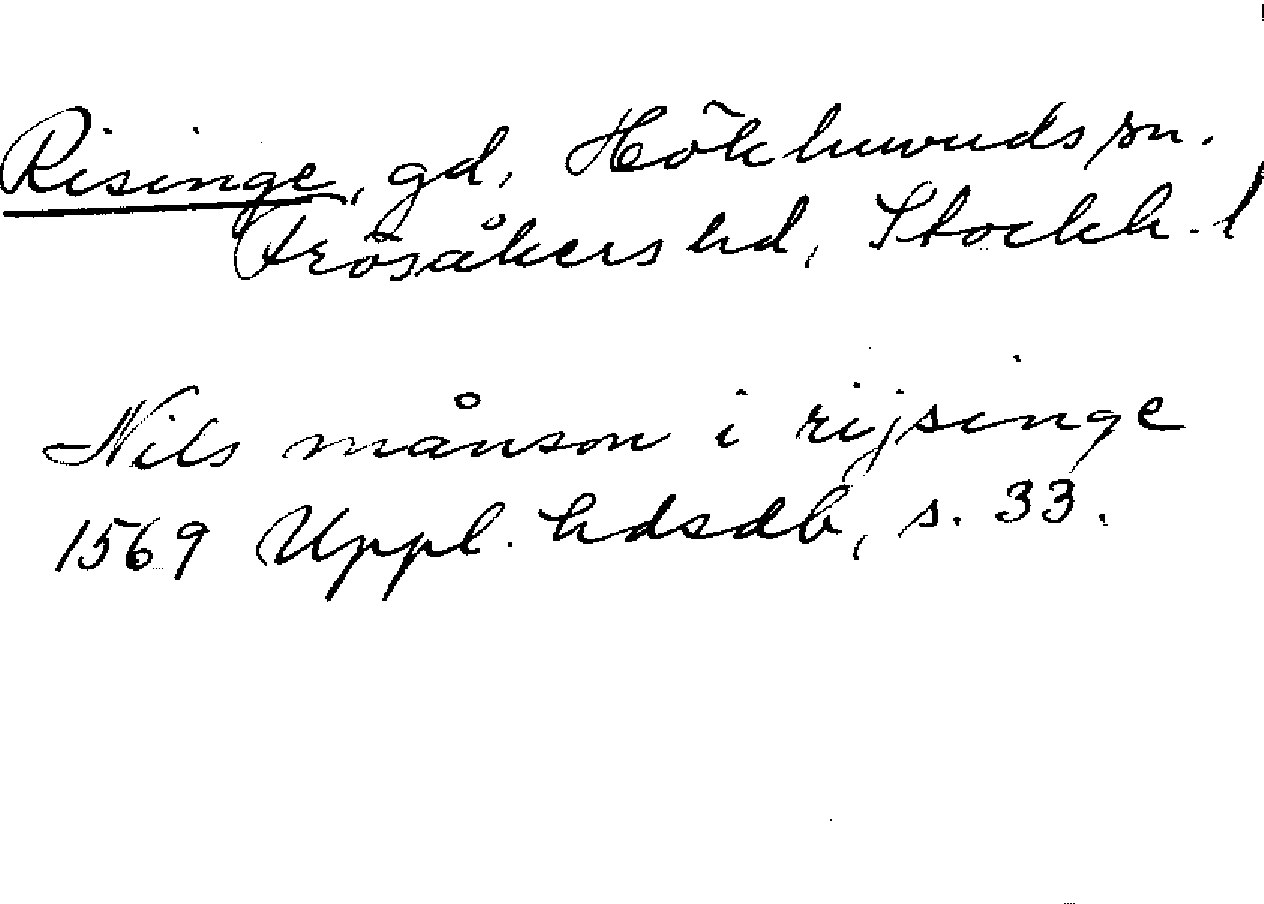 Risinge, gd, Hökhuvuds sn.
Frösåkers hd, Stockh. l
Nils månson i rijsinge
1569 Uppl. hdsdb, s. 33.